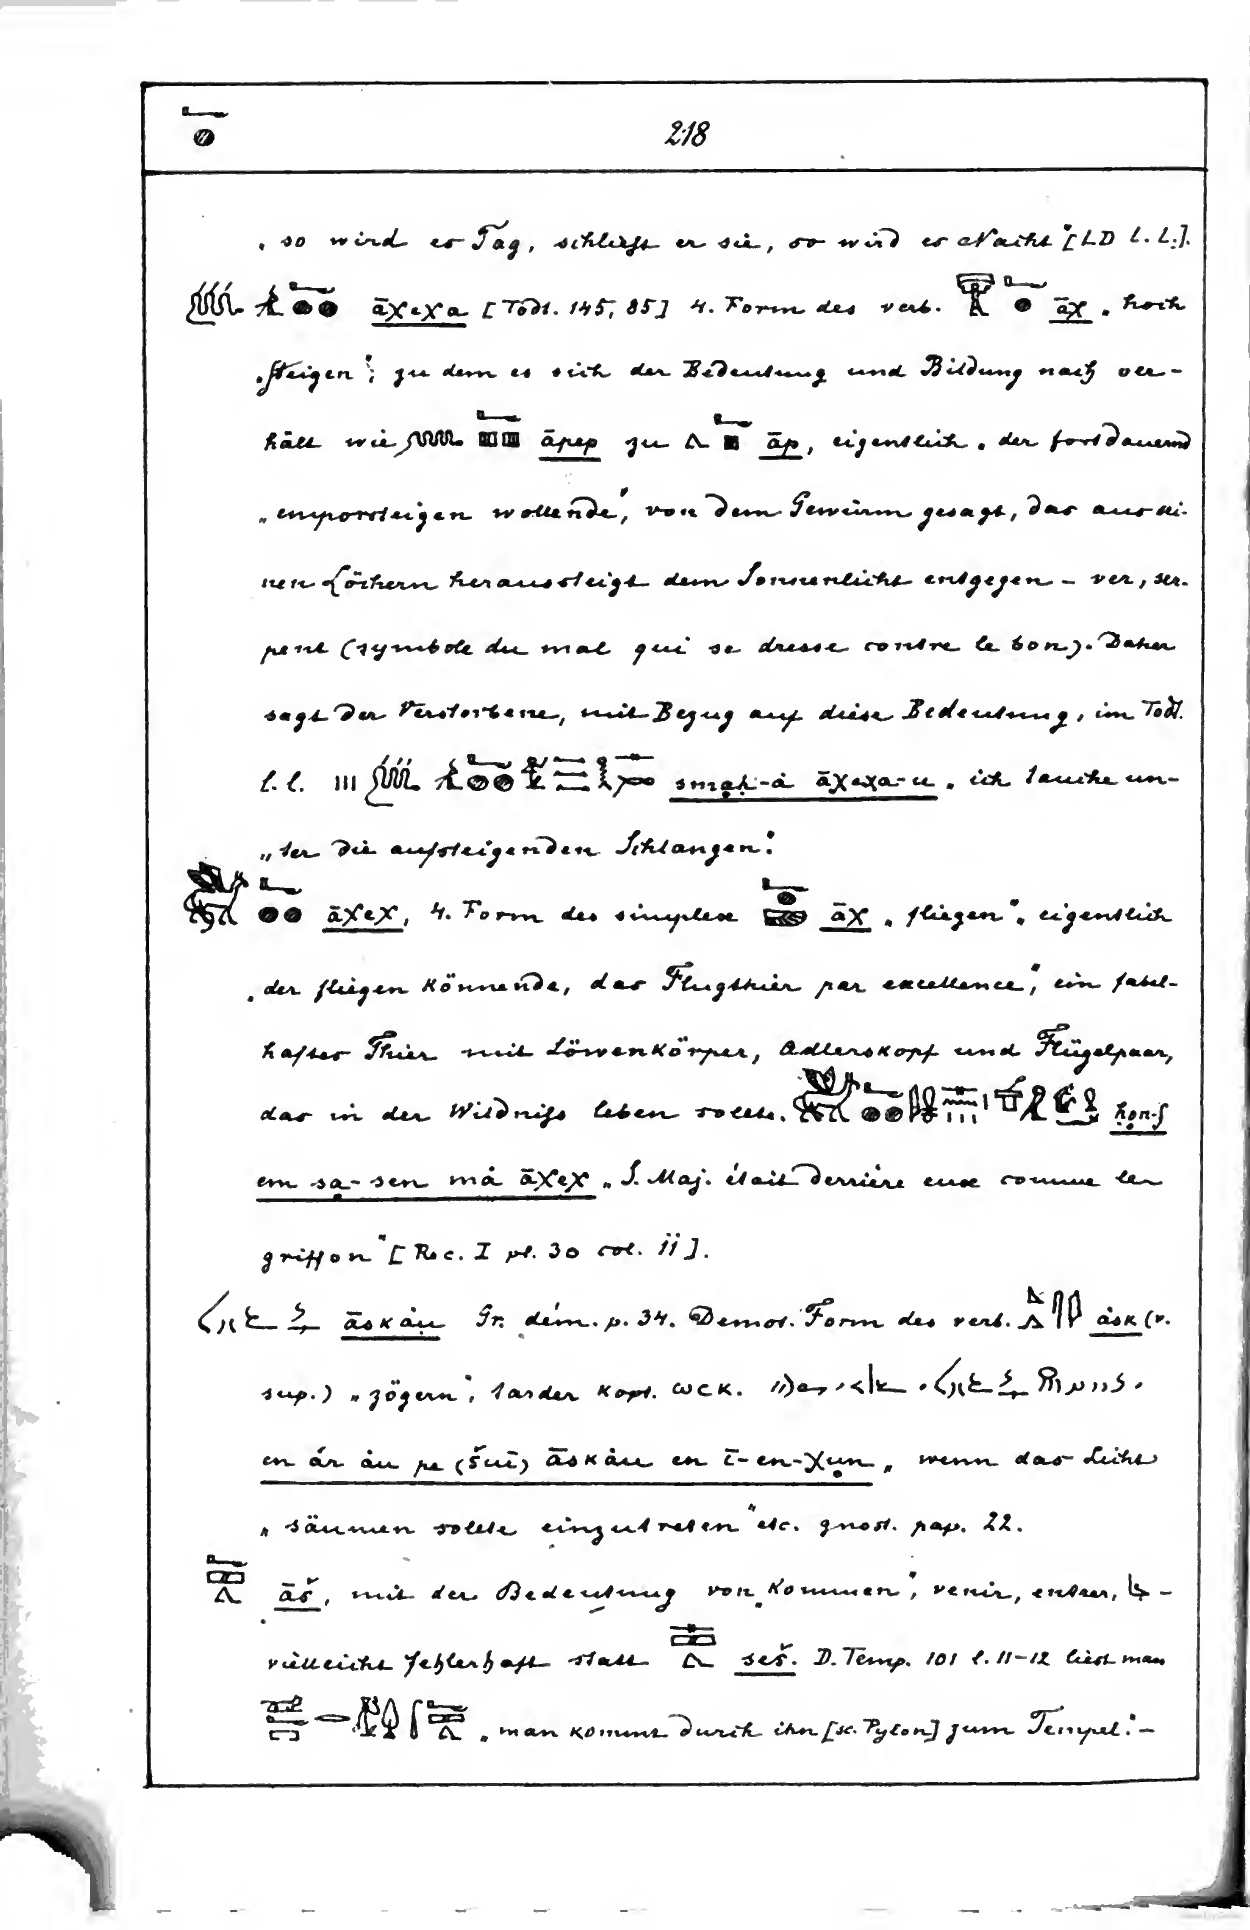 218
„so wird es Tag, schließt er sie, so wird es Nacht“ [LD l. l.].
āχeχa [Todt. 145, 85] 4. Form des verb. āχ „hoch
„steigen“, zu dem es sich der Bedeutung und Bildung nach ver-
hält wie āpep zu āp, eigentlich „der fortdauernd
„emporsteigen wollende“, von dem Gewürm gesagt, das aus sei-
nen Löchern heraussteigt dem Sonnenlicht entgegen – ver, ser-
pent (symbole du mal qui se dresse contre le bon). Daher
sagt der Verstorbene, mit Bezug auf diese Bedeutung, im Todt.
l. l. smaḥ-à āχeχa-u „ich tauche un-
„ter die aufsteigenden Schlangen“.
āχeχ, 4. Form des simplex āχ „fliegen“, eigentlich
„der fliegen könnende, das Flugthier par excellence“, ein fabel-
haftes Thier mit Löwenkörper, Adlerskopf und Flügelpaar,
das in der Wildniß leben sollte. ḥon-f
em sa-sen mȧ āχeχ „S. Maj. était derrière eux comme le
griffon“ [Rec. I pl. 30 col. 11].
āskȧu Gr. dém. p. 34. Demot. Form des verb. ȧsk (v.
sup.) „zögern“, tarder kopt. ωcκ.
en ȧr ȧu pe (šuī) āskȧu en ī-en-χun „wenn das Licht
„säumen sollte einzutreten“ etc. gnost. pap. 22.
āš, mit der Bedeutung von „kommen“, venir, entrer, –
vielleicht fehlerhaft statt seš. D. Temp. 101 l. 11-12 liest man
„man kommt durch ihn [sc. Pylon] zum Tempel“. –